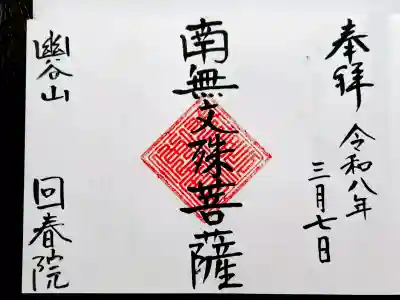 奉拝
令和八年
三月七日
南無文殊菩薩
幽谷山
回春院